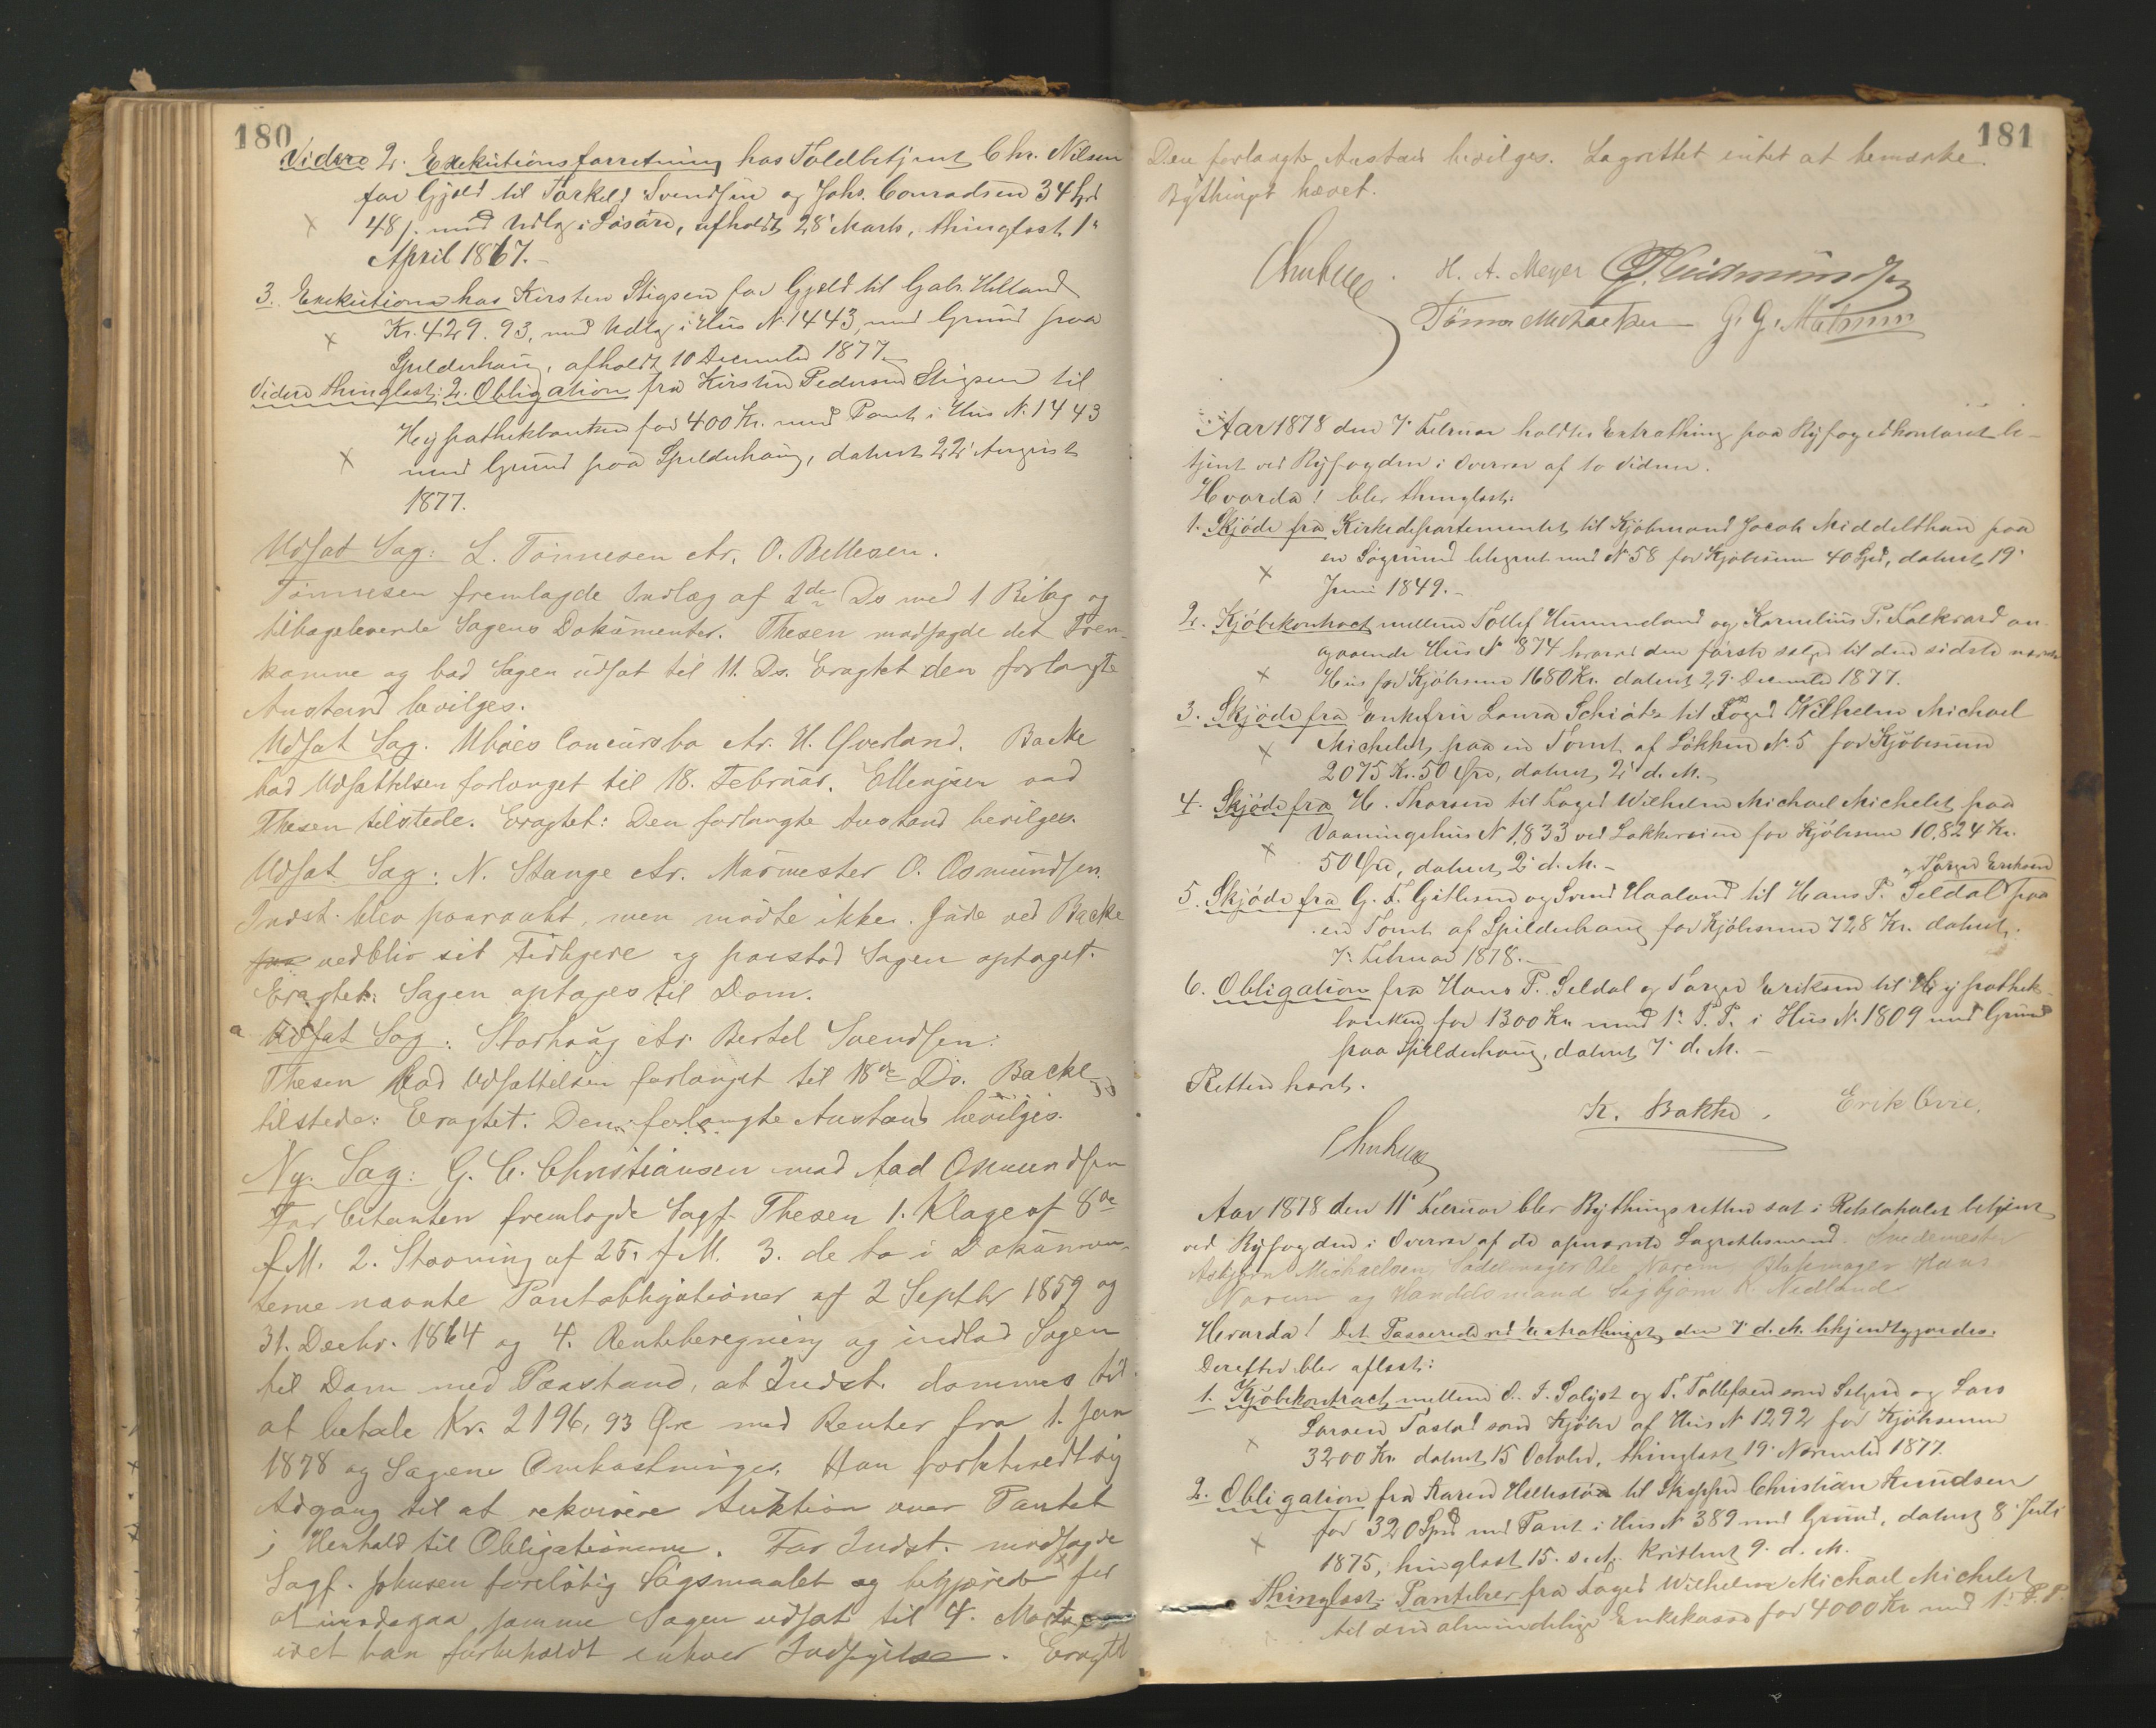 180
Videre 2. Exekutionsforretning hos Toldbetjent Chr. Nilsen
for Gjæld til Torkild Svendsen og Johs. Conradsen 34 Spd
48 s. med Udlæg i Løsøre, afholdt 28' Marts, thinglæst 1'
April 1867.
3. Exekution hos Kirsten Stigsen for Gjæld til Gabr. Helland
Kr. 429.93, med Udlæg i Hus N. 1443, med Grund paa
Spilderhaug, afholdt 10 December 1877.
Videre thinglæst: 2. Obligation fra Kirsten Pedersen Stigsen til
Hypothekbanken for 400 Kr. med Pant i Hus N. 1443
med Grund paa Spilderhaug, dateret 22' August
1877.
Udsat Sag: L. Tönnesen ctr. O. Bellesen.
Tönnesen fremlagde Indlæg af 2den Ds med 1 Bilag og
tilbageleverede Sagens Dokumenter. Thesen modsagde det Frem-
komne og bad Sagen udsat til 11. Ds. Eragtet den forlangte
Anstand bevilges.
Udsat Sag. Uböes Concursbo ctr. H. Qverland. Backe
bad Udsættelsen forlænget til 18. Februar. Ellingsen ved
Thesen tilstede. Eragtet: Den forlangte Anstand bevilges.
Udsat Sag: N. Stange ctr. Murmester O. Osmundsen.
Indst. blev paaraabt, men mödte ikke. Jude ved Backe
vedblev sit Tidligere og paastod Sagen optaget.
Eragtet: Sagen optages til Dom.
Udsat Sag: Storhaug ctr. Bertel Svendsen:
Thesen bad Udsættelsen forlænget til 18de Ds. Backe
tilstede: Eragtet: Den forlangte Anstand bevilges.
Ny. Sag: G. C. Christiansen mod Aad Osmundsen
For Citanten fremlagde Sagf. Thesen 1. Klage af 8de
f.M. 2. Stævning af 25. f.M. 3. de to i Dokumen-
terne nævnte Pantobligationer af 2 Septbr 1859 og
31. Decbr. 1864 og 4. Renteberegning og indlod Sagen
til Dom med Paastand, at Indst. dömmes til
at betale Kr. 2196,93 Øre med Renter fra 1. Jan
1878 og Sagens Omkostninger. Han forbeholdt sig
Adgang til at rekvirere Auktion over Pantet
i Henhold til Obligationerne. For Indst. modsagde
Sagf. Johnsen forelöbig Sögsmaalet og begjærede for
at imödegaa samme Sagen udsat til 4. Marts,
idet han forbeholdt enhver Indsigelse. Eragtet
181
Den forlangte Anstand bevilges. Lagrettet intet at bemærke.
Bythinget hævet.
H. A. Meyer
Tönnes Michaelsen G. G.
Aar 1878 den 7' Februar holdtes Extrathing paa Byfogedkontoret be-
tjent ved Byfogden i Overvær af to Vidner.
Hvorda! blev thinglæst:
1. Skjöde fra Kirkedepartementet til Kjöbmand Jacob Middelthon paa
en Sögrund betegnet med N 58 for Kjöbesum 40 Spd, dateret 19'
Juni 1849.
2. Kjöbekontract mellem Tollef Hummeland og Kornelius P. Falkvard an-
gaaende Hus N 874 hvorved den förste sælger til den sidste nævnte
Hus for Kjöbesum 1680 Kr. dateret 29' December 1877.
3. Skjöde fra Enkefru Laura Schiötz til Foged Wilhelm Michael
Michelet, paa en Tomt af Lökken N. 5 for Kjöbesum
2075 Kr. 50 Øre, dateret 2' d. M.
4. Skjöde fra H. Thorsen til Foged Wilhelm Michael Michelet paa
Vaaningshus N 1833 ved Løkkeveien for Kjöbesum 10,824 Kr.
50 Øre, dateret 2' d. M.
og Torger Eriksen
5. Skjöde fra G. F. Gitlesen og Svend Haaland til Hans P. Seldal paa
en Tomt af Spilderhaug for Kjöbesum 728 Kr. dateret
7' Februar 1878.
6. Obligation fra Hans P. Seldal og Torger Eriksen til Hypothek-
banken for 1300 Kr. med 1' P. P. i Hus N. 1809 med Grund
paa Spilderhaug, dateret 7' d. M.
Retten hævet.
K. Bakke. Erik Evie.
Aar 1878 den 11' Februar blev Bythingsretten sat i Retslokalet betjent
ved Byfogden i Overvær af de opnævnte Lagrettesmænd. Snedkermester
Asbjørn Michaelsen, Sadelmager Ole Norem, Blokmager Hans
Norem og Handelsmand Sigbjørn R. Nedland
Hvorda! Det Passerede ved Extrathinget den 7' d. M. bekjendtgjordes.
Derefter blev aflæst:
1. Kjöbekontract mellem O. J. Solyst og T. Tollefsen som Sælger og Lars
Larsen Tastad som Kjöber af Hus N 1292 for Kjöbesum
3200 Kr. dateret 15 October, thinglæst 19' November 1877.
2. Obligation fra Karen Hellestø til Skipper Christian Knudsen
for 320 Spd med Pant i Hus N 389 med Grund, dateret 8' Juli
1875, thinglæst 15. s. M. kvitteret 9. d. M.
Thinglæst: Pantebrev fra Foged Wilhelm Michael Michelet
til den almindelige Enkekasse for 4000 Kr med 1' P. P.